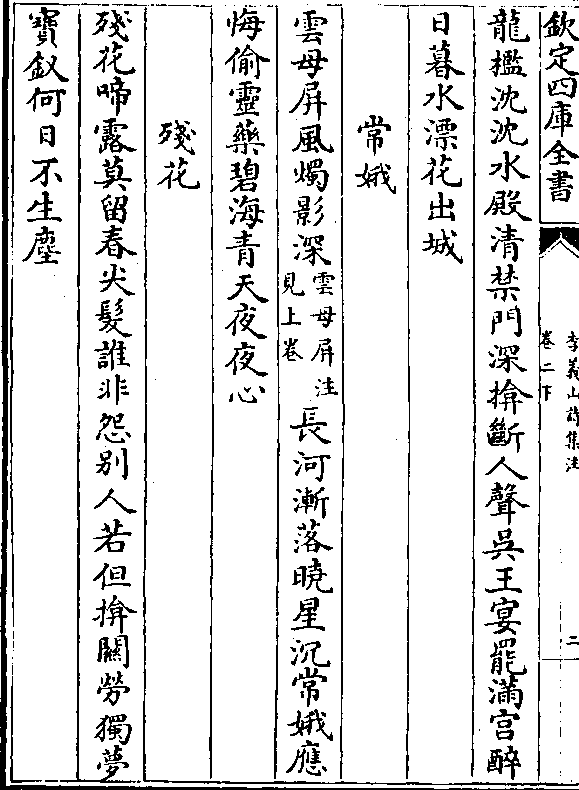 欽定四庫全書
李義山詩集注
卷二下
二
龍檻沈沈水殿清禁門深揜斷人聲吳王宴罷滿宮醉
日暮水漂花出城
常娥
雲母屏風燭影深雲母屏注見上卷長河漸落曉星沉常娥應
悔偷靈藥碧海青天夜夜心
殘花
殘花啼露莫留春尖髮誰非怨别人若但揜關勞獨夢
寶釵何日不生塵